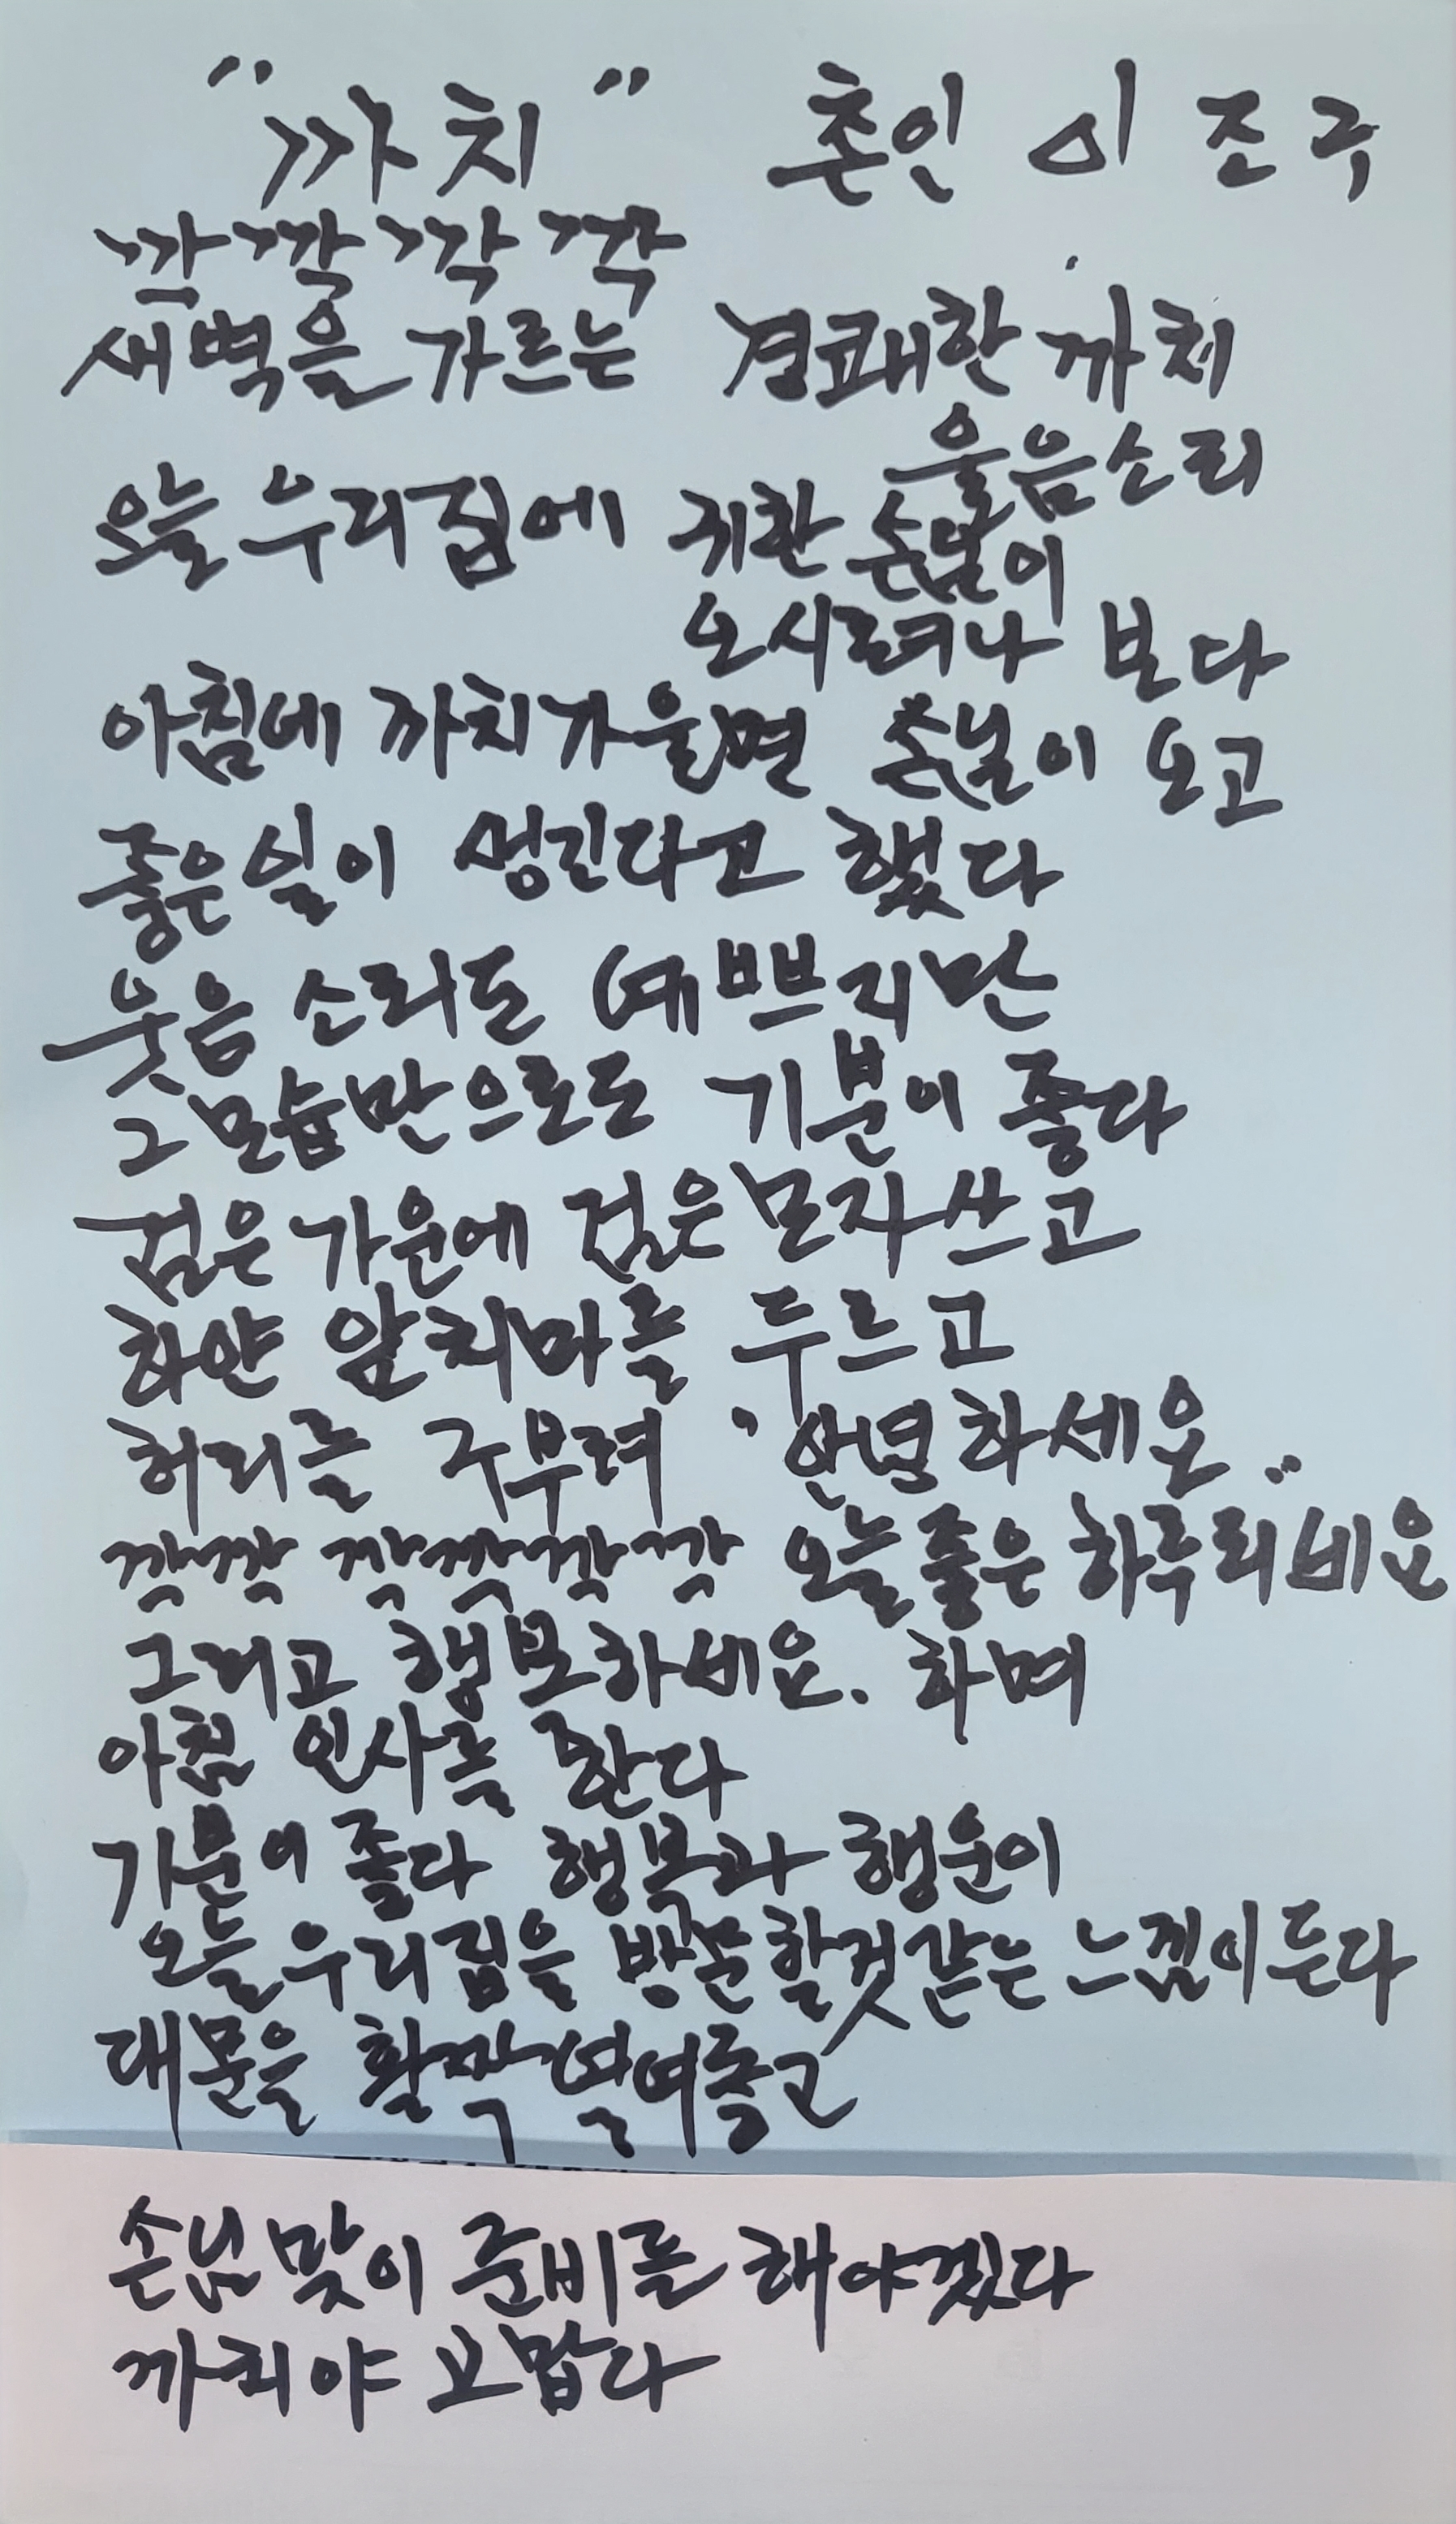 "까치" 촌인 이조구
깍깍깍깍
새벽을 가르는 경쾌한 까치
울음소리
오늘 우리집에 귀한 손님이
오시려나 보다
아침에 까치가울면 손님이 오고
좋은일이 생긴다고 했다
웃음 소리도 예쁘지만
그모습만으로도 기분이 좋다
검은 가운에 검은모자쓰고
하얀 앞치마를 두르고
허리를 구부려 "안녕하세요"
깍깍 깍깍깍깍 오늘좋은 하루되세요
그리고 행복하세요. 하며
아침 인사를 한다
기분이 좋다 행복과 행운이
오늘우리집을 방문할것같은 느낌이든다
대문을 활짝열여놓고
손님맞이 준비를 해야겠다
까치야 고맙다